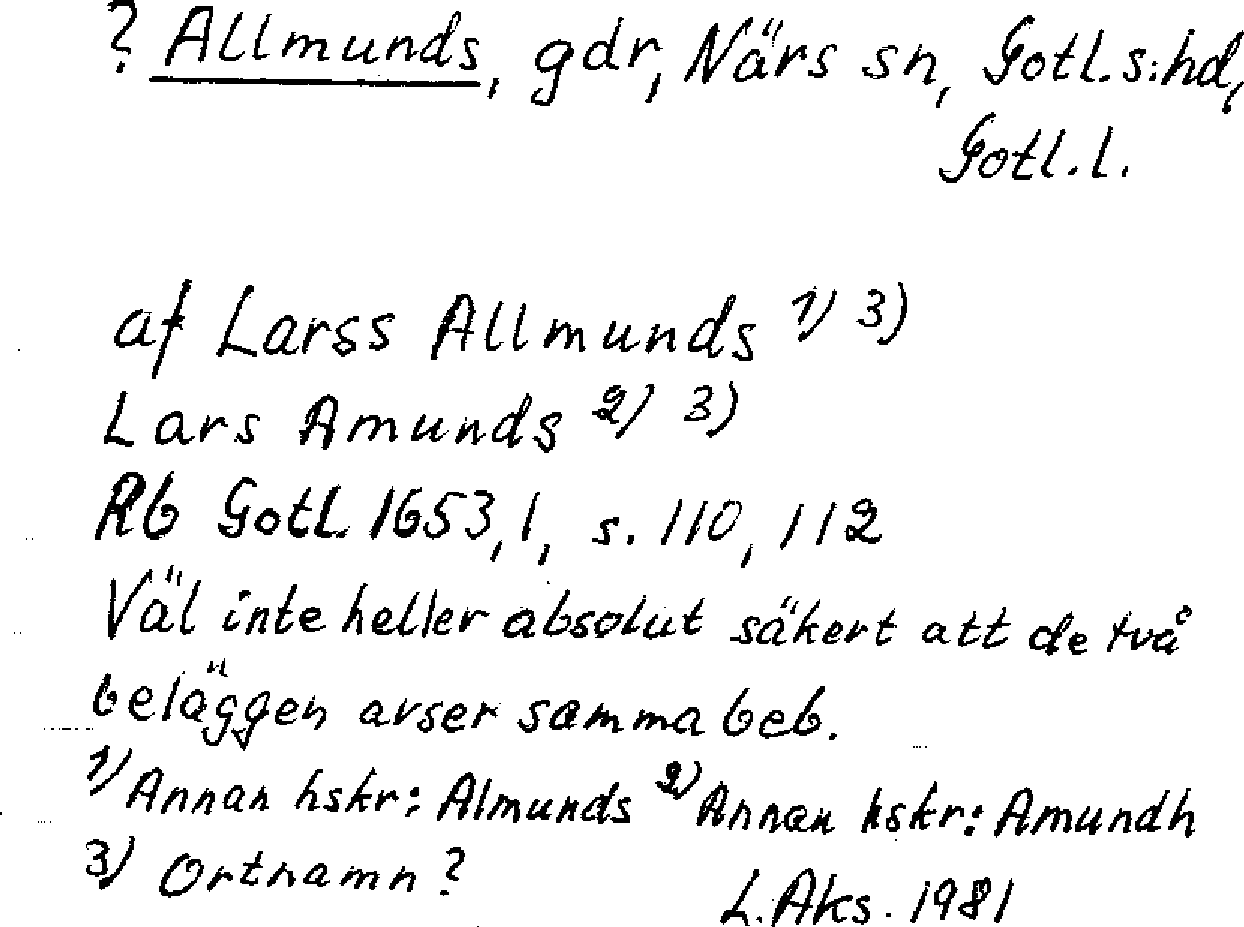 ? Allmunds, gdr, Närs sn, Gotl.s:hd,
Gotl.l.
af Larss Allmunds 1) 3)
Lars Amunds 2) 3)
Rb Gotl 1653,1, s. 110, 112
Väl inte heller absolut säkert att de två
beläggen avser samma beb.
1) Annan hskr: Almunds 2) Annan hskr: Amundh
3) Ortnamn?
L. Aks. 1981